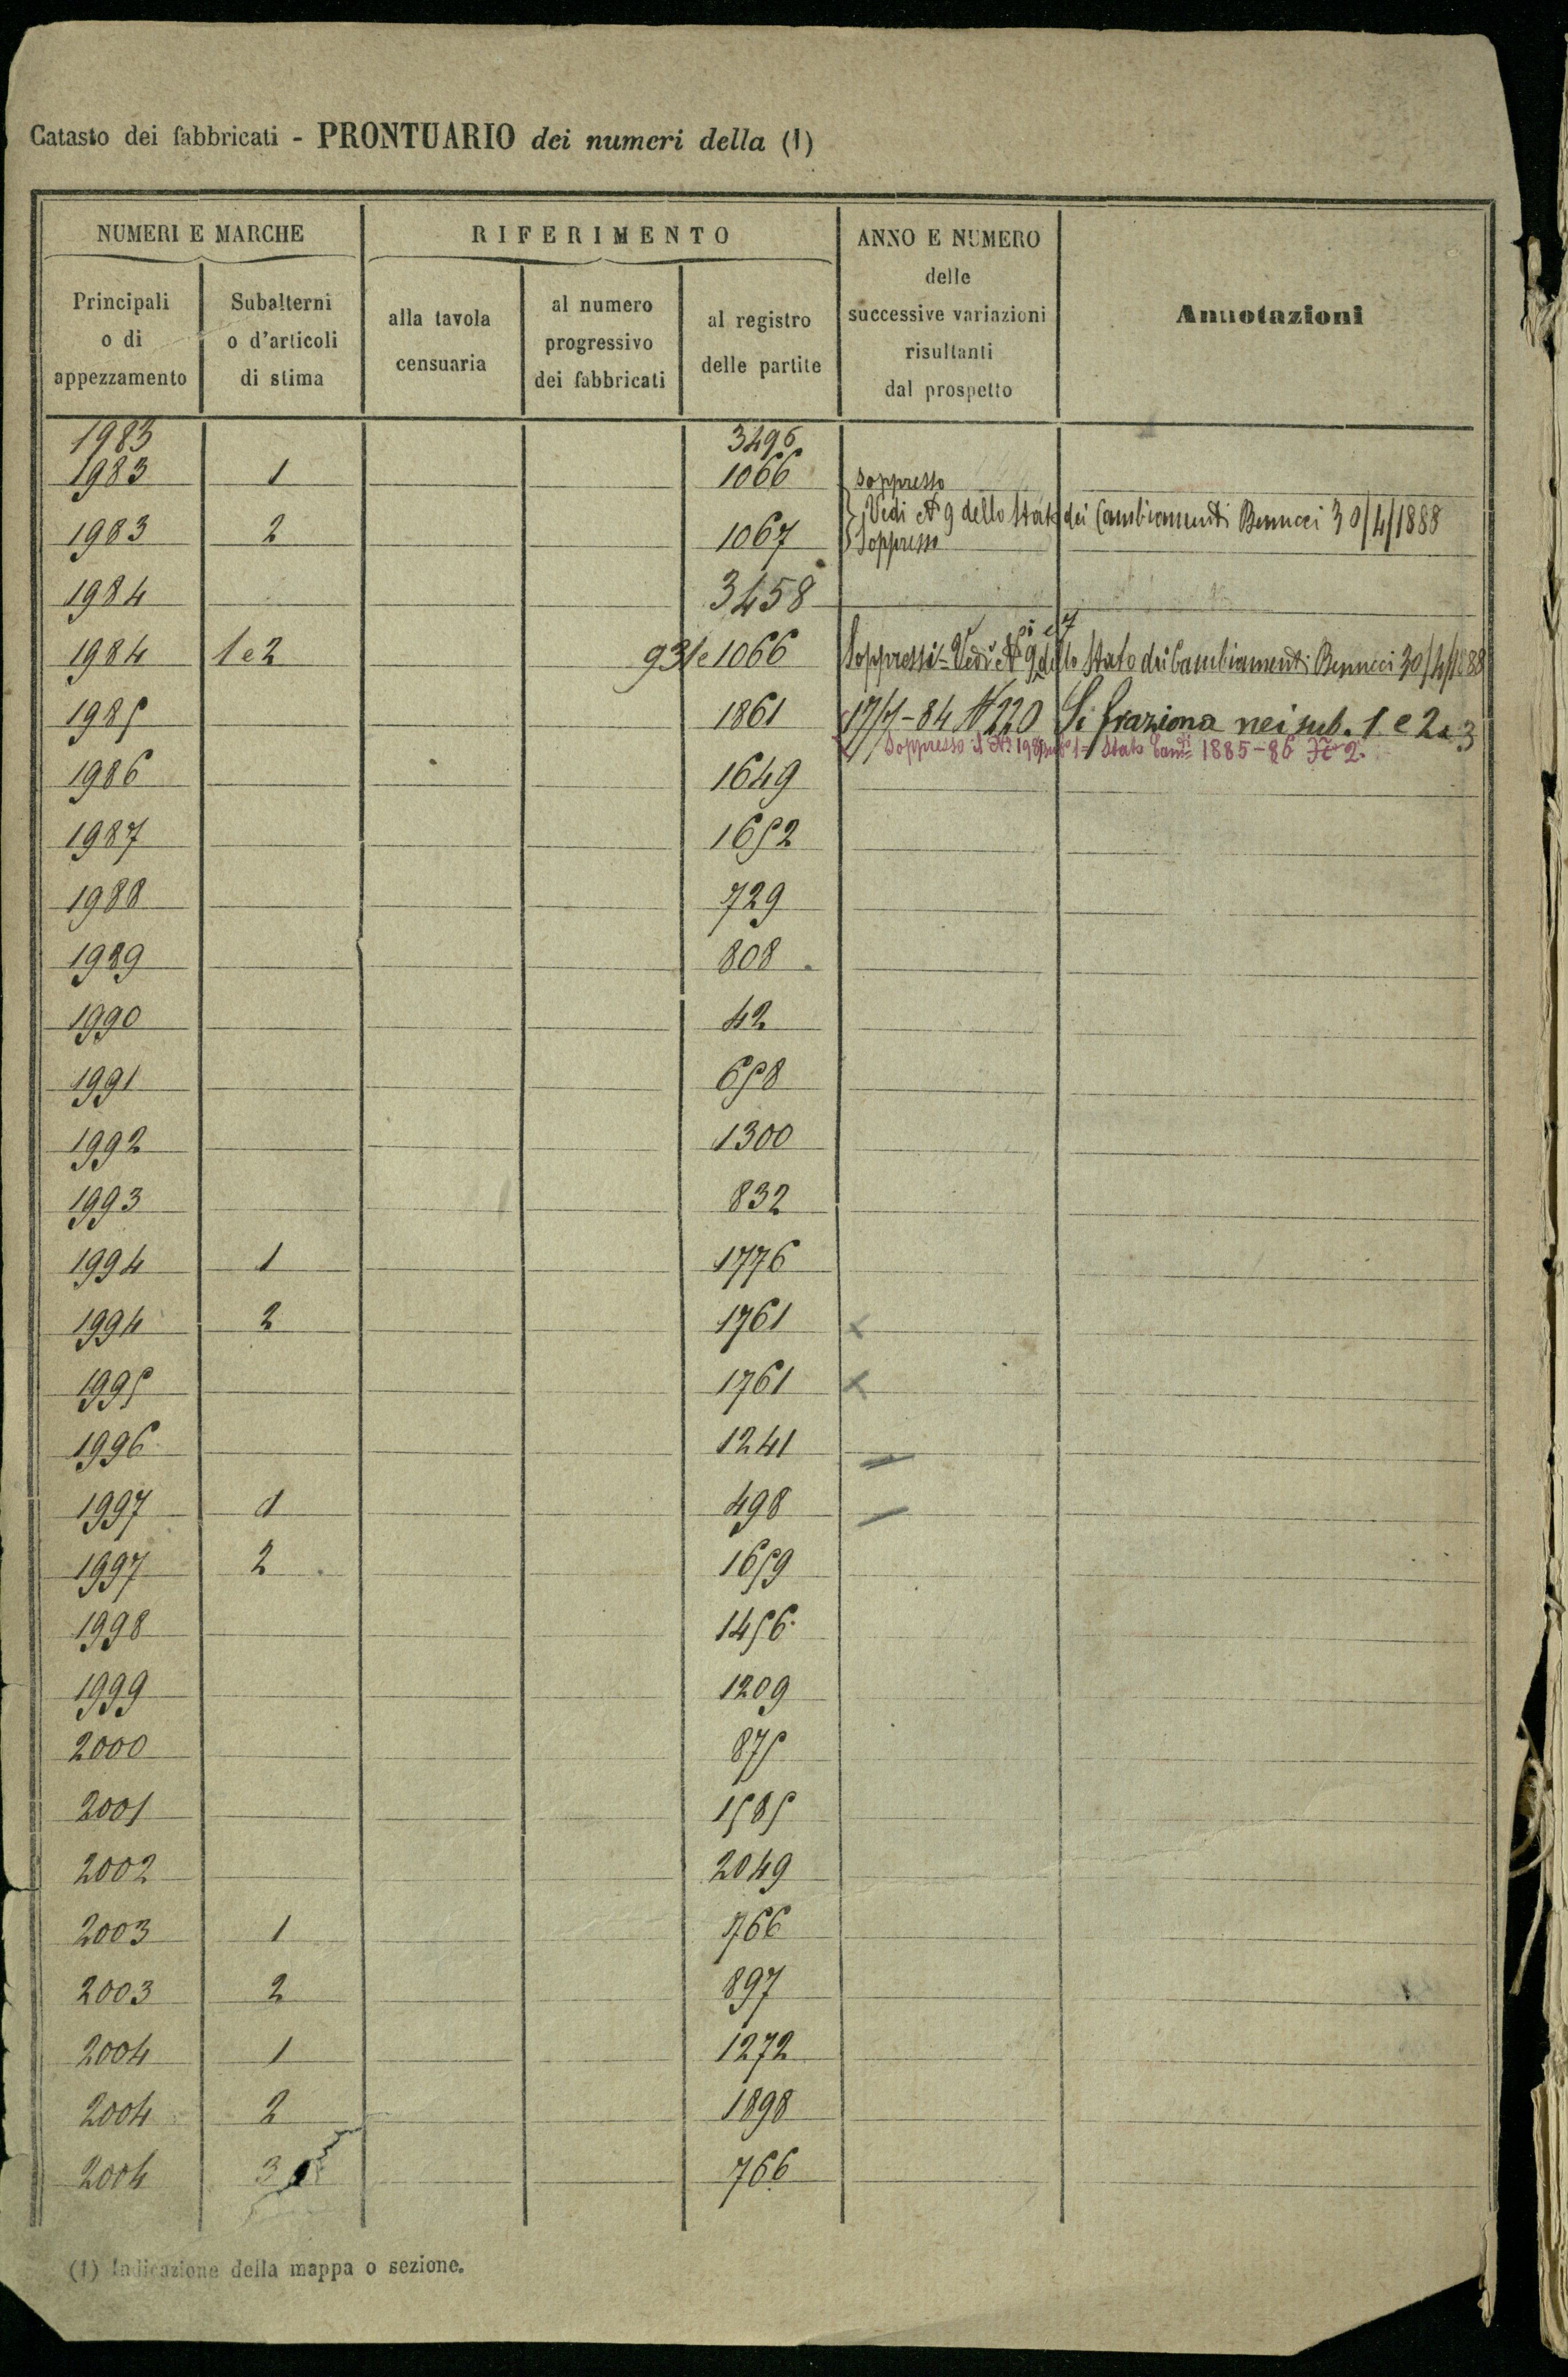 Catasto dei fabbricati - PRONTUARIO dei numeri della (1)
NUMERI E MARCHE RIFERIMENTO ANNO E NUMERO delle successive variazioni risultanti dal prospetto Annotazioni
Principali o di appezzamento Subalterni o d'articoli di stima alla tavola censuaria al numero progressivo dei fabbricati al registro delle partite
1983 3496
1983 1 1066 soppresso
Vedi N 9 dello Stato dei Cambiamenti Bennucci 30/4/1888
1983 2 1067 Soppresso
1984 3458
1984 1 e 2 931 e 1066 Soppressi - Vedi Ni 9 e 7 dello Stato dei Cambiamenti Bennucci 30/4/1888
1985 1861 17/7-84 N 220 Si fraziona nei sub. 1 e 2 e 3
Soppresso il N 1985 sub 1 = Stato Camti 1885-86 N 2.
1986 1649
1987 1652
1988 729
1989 808
1990 42
1991 658
1992 1300
1993 832
1994 1 1776
1994 2 1761 x
1995 1761 x
1996 1241
1997 1 498
1997 2 1659
1998 1456
1999 1209
2000 875
2001 1585
2002 2049
2003 1 766
2003 2 897
2004 1 1272
2004 2 1898
2004 3 766
(1) Indicazione della mappa o sezione.